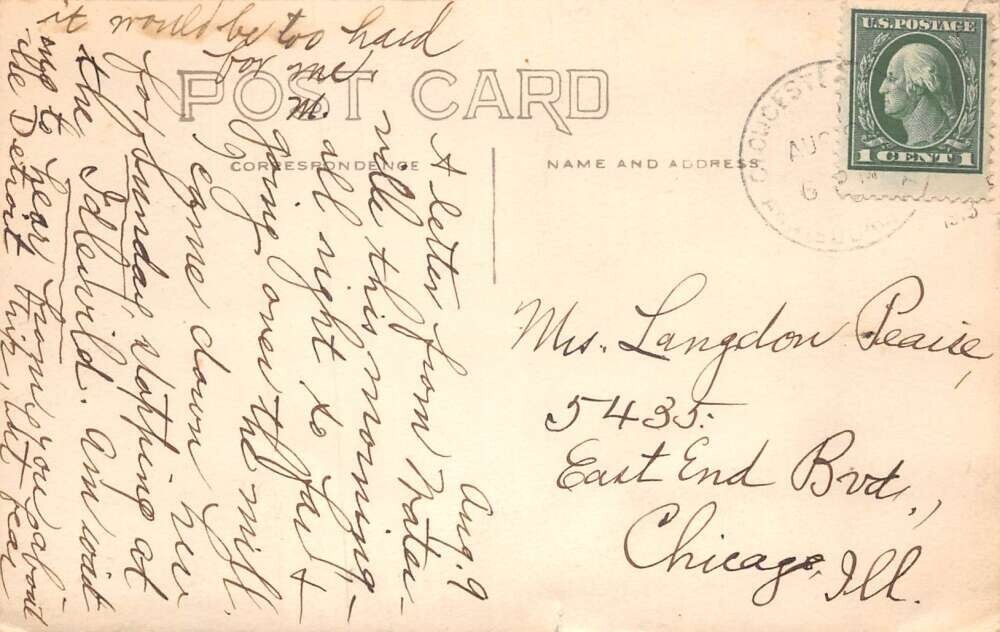 POST CARD
CORRESPONDENCE
NAME AND ADDRESS
U.S. POSTAGE
1 CENT 1
GLOUCESTER
AUG
Aug. 9
A letter from Water-
ville this morning -
all right so far &
going over the mill.
I came down here
for Sunday, stopping at
the Idlewild. Am wait
ing to hear from you about
the Detroit trip, but fear
it would be too hard
for me.
M.
Mrs. Langdon Pearse,
5435
East End Bvd.,
Chicago, Ill.